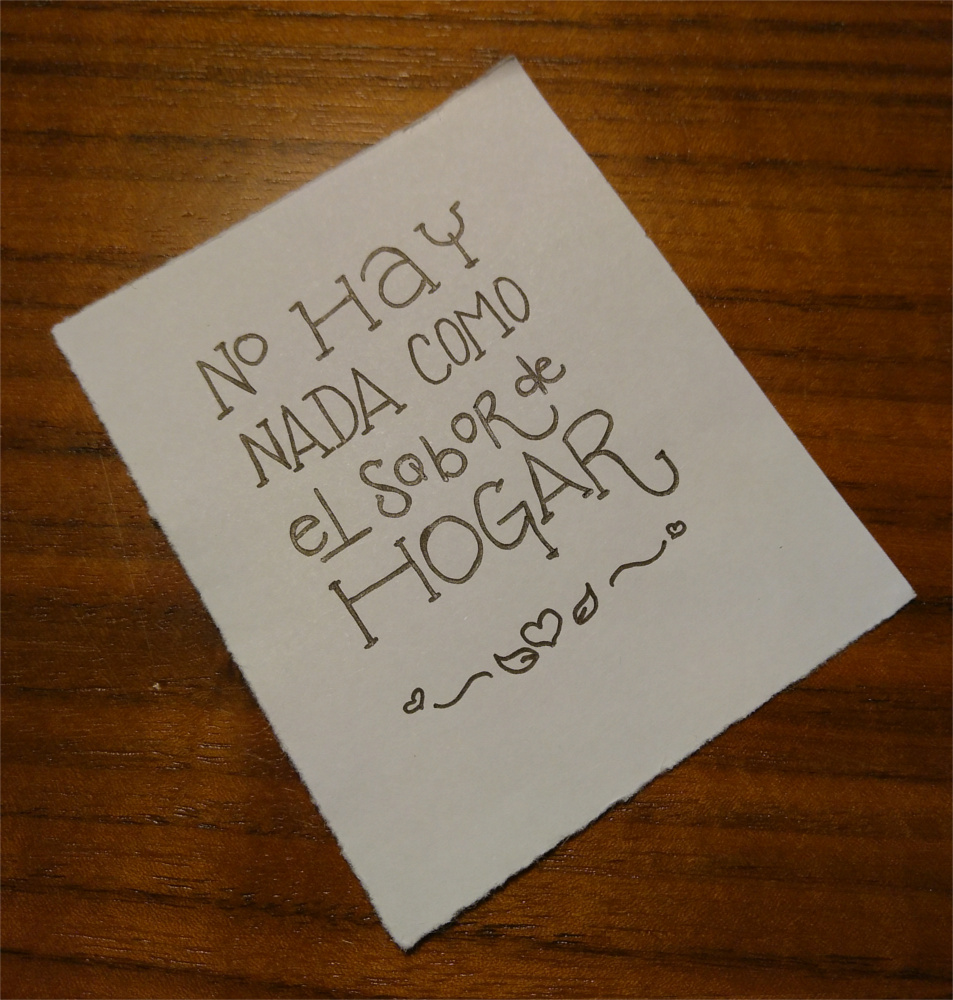 No Hay
NADA COMO
el SaboR de
HOGAR